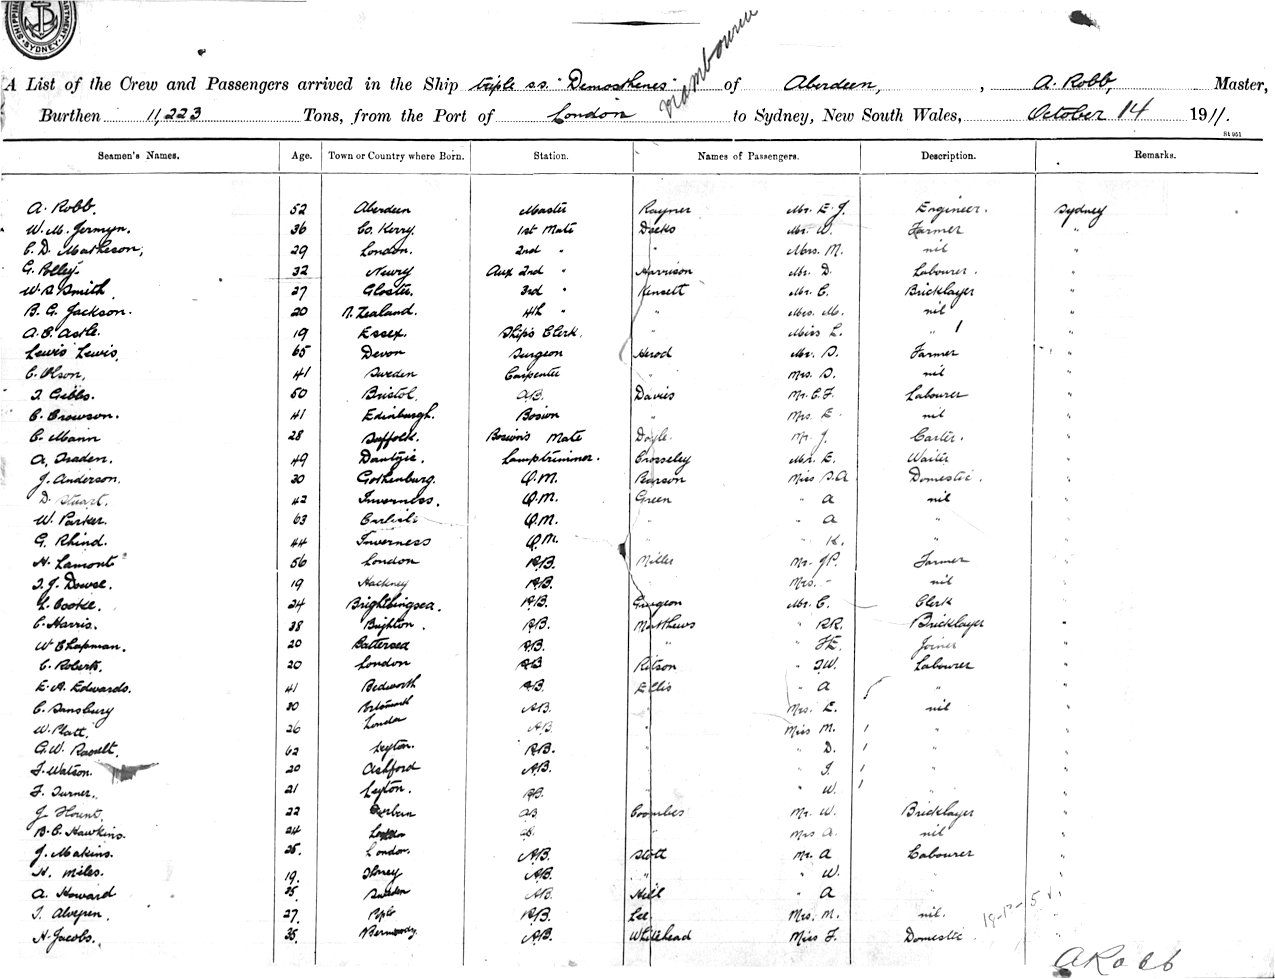 SYDNEY
A List of the Crew and Passengers arrived in the Ship triple s.s. "Demosthenes" of Aberdeen, , A. Robb, Master,
Burthen 11,223 Tons, from the Port of London to Sydney, New South Wales, October 14 1911.
St 951
Seamen's Names. Age. Town or Country where Born. Station. Names of Passengers. Description. Remarks.
A. Robb. 52 Aberdeen Master Rayner Mr. E. J. Engineer. Sydney
W. M. Jermyn. 36 Co. Kerry. 1st Mate Dacks Mr. W. Farmer "
C. D. Matheson, 29 London. 2nd " " Mrs. M. nil "
G. Polley. 32 Newry Aux 2nd " Harrison Mr. D. Labourer. "
W. S. Smith 27 Gloster. 3rd " Kensett Mr. C. Bricklayer "
B. G. Jackson. 20 N. Zealand. 4th " " Mrs. M. nil "
A. C. Astle. 19 Essex. Ship's Clerk. " Miss L. " 1 "
Lewis Lewis. 65 Devon Surgeon Herod Mr. S. Farmer "
C. Olson, 41 Sweden Carpenter " Mrs. S. nil "
T. Gibbs. 50 Bristol. A.B. Davies Mr. C. F. Labourer "
C. Crowson. 41 Edinburgh. Bosun " Mrs. E. nil "
C. Mann 28 Suffolk. Bosun's Mate Doyle. Mr. J. Carter. "
A. 49 Dantzic. Lamptrimmer. Crossley Mr. E. Waiter "
J. Anderson. 30 Gothenburg. Q.M. Miss S. A Domestic. "
D. Stuart. 42 Inverness. Q.M. Green " A nil "
W. Parker. 63 Carlisle Q.M. " " A " "
G. Rhind. 44 Inverness Q.M. " " K. " "
H. Lamont 56 London A.B. Miller Mr. J.P. Farmer "
T. J. Dowse. 19 Hackney A.B. " Mrs. - nil "
Cooke. 24 Brightlingsea. A.B. Gurgeon Mr. C. Clerk "
C. Harris. 38 Brighton. A.B. Matthews " R.R. Bricklayer "
W Chapman. 20 Battersea A.B. " " F.E. Joiner "
C. Roberts. 20 London A.B. Ritson " T.W. Labourer "
E. A. Edwards. 41 Bedworth A.B. Ellis " A " "
C. Sansbury 30 Portsmouth A.B. " Mrs. E. nil "
W. Platt. 26 London A.B. " Miss M. 1 " "
G. W. Raoult. 62 Leyton. A.B. " " D. 1 " "
J. Watson. 20 Ashford A.B. " " J. 1 " "
F. Turner. 21 Leyton. A.B. " " W. 1 " "
J 22 Durban A.B. Coombes Mr. W. Bricklayer "
B. C. Hawkins. 24 London A.B. " Mrs A. nil "
J. Makins. 25. London. A.B. Stott Mr. A Labourer "
H. Miles. 19. A.B. " " W. " "
A. Howard 25 Sweden A.B. Hill " A " "
T. 27. A.B. Lee Mrs. M. nil. "
H. Jacobs. 35. A.B. Whitehead Miss F. Domestic "
A Robb